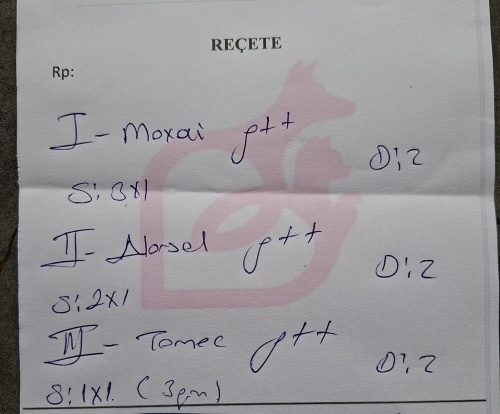 REÇETE
Rp:
I - Moxai gtt
D:2
S: 3x1
II - Norsol gtt
D:2
S: 2x1
III - Tomec gtt
D:2
S: 1x1 (3gün)